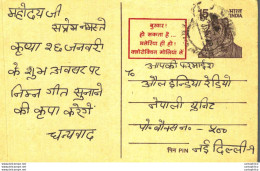 महोदय जी
सप्रेम नमस्ते
कृपया २६ जनवरी
के शुभ अवसर पर
निम्न गीत सुनाने
की कृपा करेंगे
धन्यवाद
बुखार!
हो सकता है...
मलेरिया ही हो!
क्लोरोक्विन गोलियां लें
15
भारत
INDIA
आपकी फरमाईश
ऑल इन्डिया रेडियो
नेपाली यूनिट
पो० बौक्स नं० - ५००
पिन PIN नई दिल्ली-१